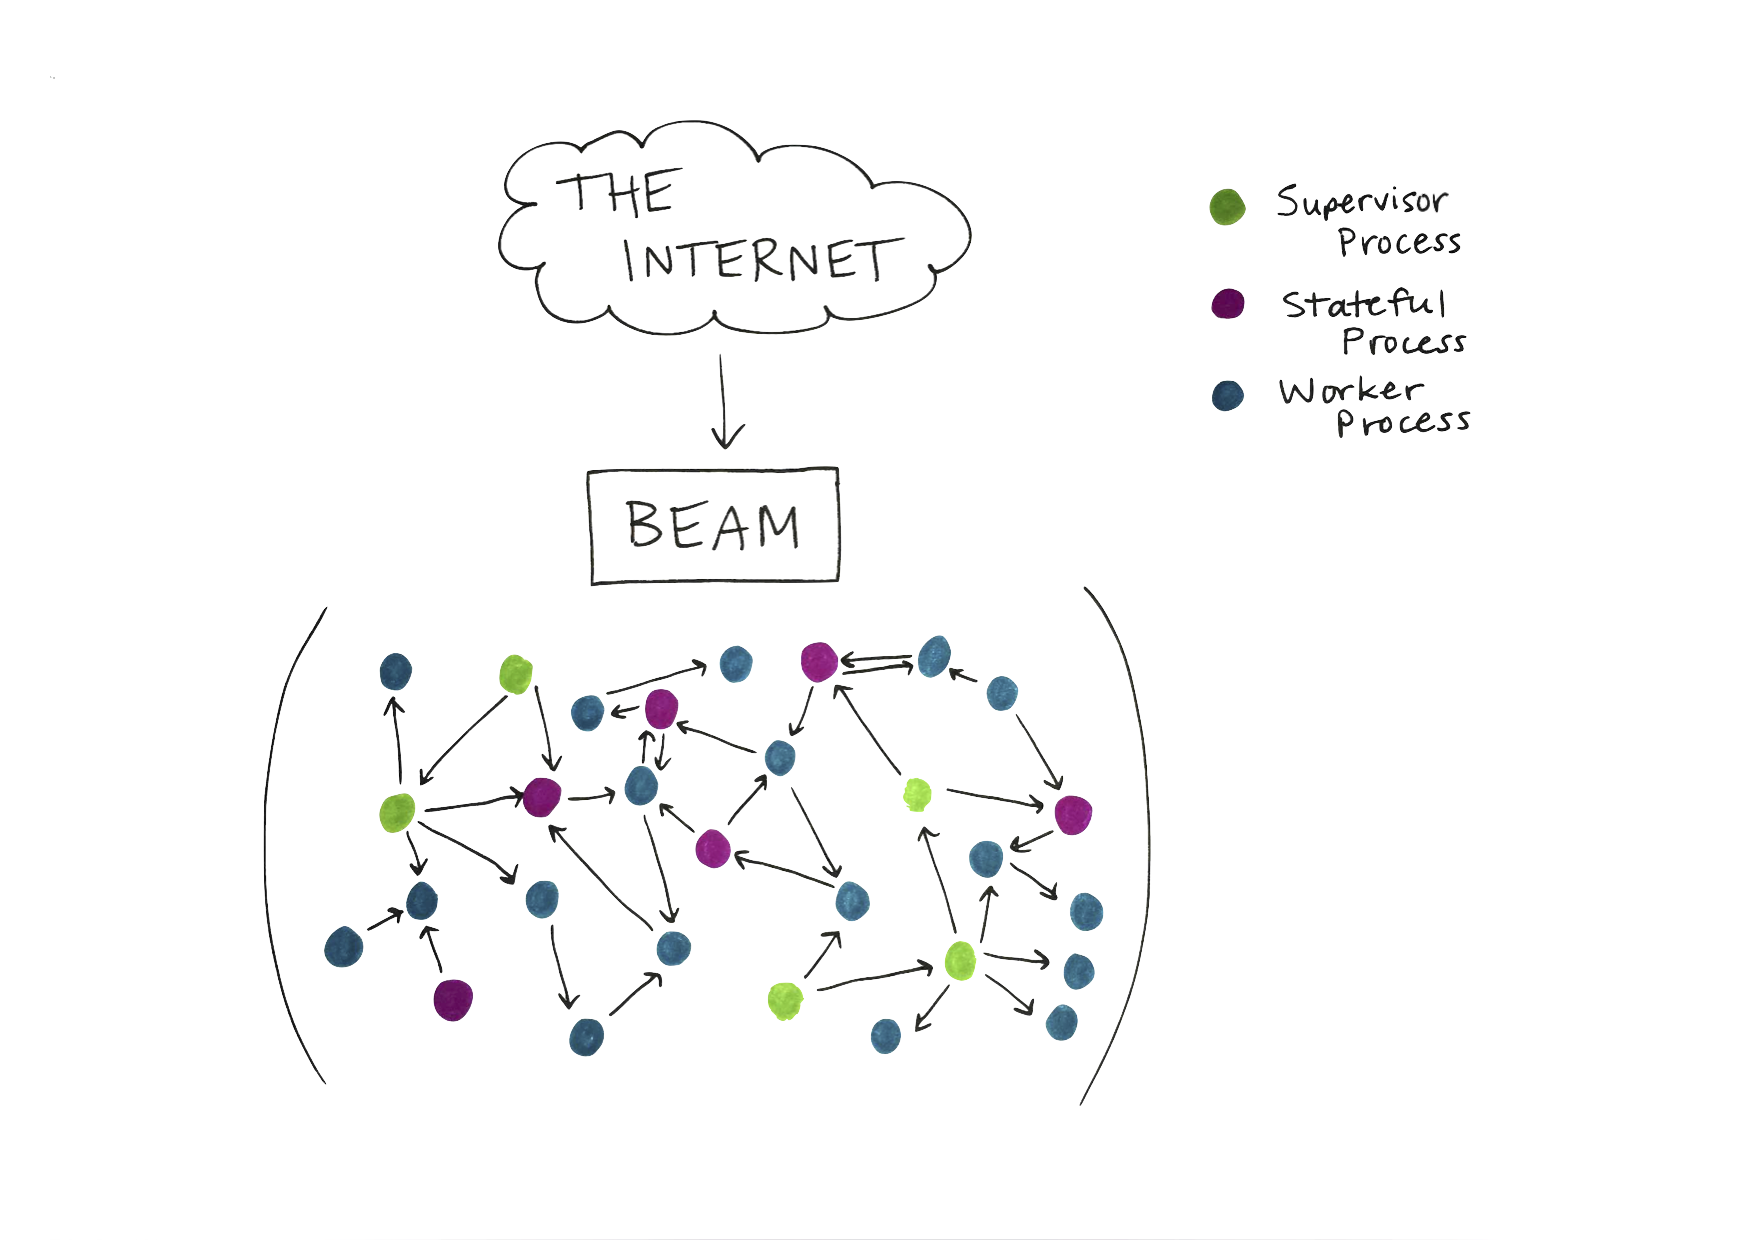 THE
INTERNET
BEAM
Supervisor
Process
Stateful
Process
Worker
Process